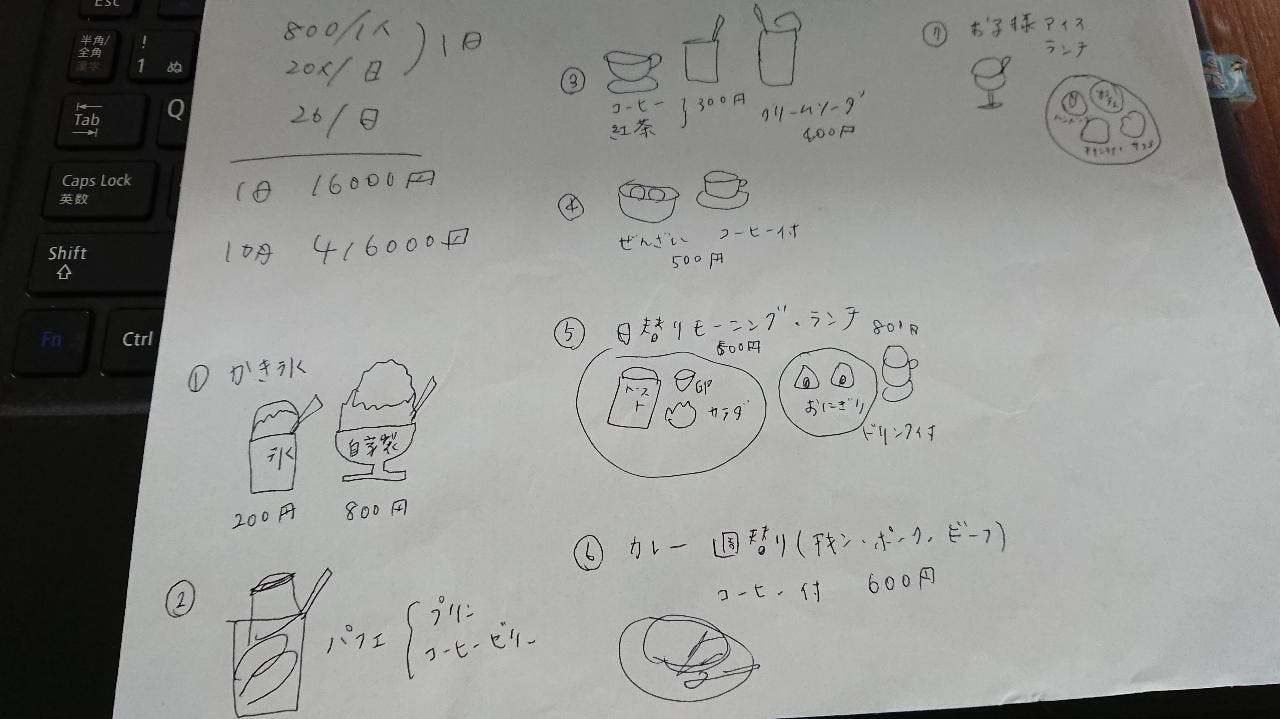 Esc
半角/
全角
漢字
!
1 ぬ
Tab
Q
Caps Lock
英数
Shift
Fn
Ctrl
800/1人
20人/日
)1日
26/日
1日 16000円
1ヵ月 416000円
① かき氷
氷
自家製
200円
800円
②
パフェ
プリン
コーヒーゼリー
③
コーヒー
紅茶
}300円
クリームソーダ
400円
④
ぜんざい コーヒー付
500円
⑤ 日替りモーニング・ランチ 800円
トースト
GP
サラダ
おにぎり
ドリンク付
⑥ カレー 週替り(チキン・ポーク・ビーフ)
コーヒー付 600円
⑦ お子様アイス
ランチ
サラダ